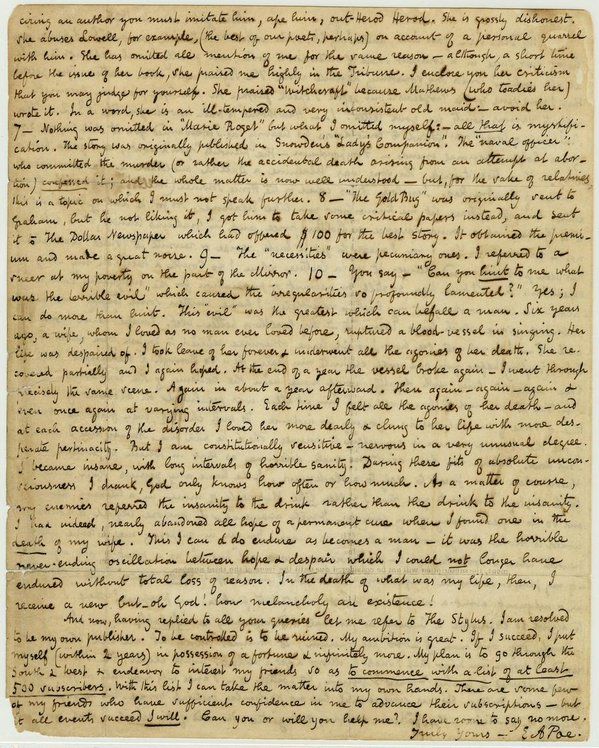 ciring an author you must imitate him, ape him, out-Herod Herod. She is grossly dishonest.
She abuses Lowell, for example, (the best of our poets, perhaps) on account of a personal quarrel
with him. She has omitted all mention of me for the same reason — although, a short time
before the issue of her book, she praised me highly in the Tribune. I enclose you her criticism
that you may judge for yourself. She praised "Witchcraft" because Mathews (who toadies her)
wrote it. In a word, she is an ill-tempered and very inconsistent old maid — avoid her.
7 — Nothing was omitted in "Marie Roget" but what I omitted myself: — all that is mystifi-
cation. The story was originally published in Snowden's "Lady's Companion. The "naval officer"
who committed the murder (or rather the accidental death arising from an attempt at abor-
tion) confessed it; and the whole matter is now well understood — but, for the sake of relatives,
this is a topic on which I must not speak further. 8 — "The Gold Bug" was originally sent to
Graham, but he not liking it, I got him to take some critical papers instead, and sent
it to The Dollar Newspaper which had offered $100 for the best story. It obtained the premi-
um and made a great noise. 9 — The "necessities" were pecuniary ones. I referred to a
sneer at my poverty on the part of the Mirror. 10 — You say — "Can you hint to me what
was the terrible evil" which caused the irregularities so profoundly lamented?" Yes; I
can do more than hint. This "evil" was the greatest which can befall a man. Six years
ago, a wife, whom I loved as no man ever loved before, ruptured a blood-vessel in singing. Her
life was despaired of. I took leave of her forever & underwent all the agonies of her death. She re-
covered partially and I again hoped. At the end of a year the vessel broke again — I went through
precisely the same scene. Again in about a year afterward. Then again — again — again &
even once again at varying intervals. Each time I felt all the agonies of her death — and
at each accession of the disorder I loved her more dearly & clung to her life with more des-
perate pertinacity. But I am constitutionally sensitive — nervous in a very unusual degree.
I became insane, with long intervals of horrible sanity. During these fits of absolute uncon-
sciousness I drank, God only knows how often or how much. As a matter of course,
my enemies referred the insanity to the drink rather than the drink to the insanity.
I had indeed, nearly abandoned all hope of a permanent cure when I found one in the
death of my wife. This I can & do endure as becomes a man — it was the horrible
never-ending oscillation between hope & despair which I could not longer have
endured without total loss of reason. In the death of what was my life, then, I
receive a new but — oh God! how melancholy an existence!
And now, having replied to all your queries let me refer to The Stylus. I am resolved
to be my own publisher. To be controlled is to be ruined. My ambition is great. If I succeed, I put
myself (within 2 years) in possession of a fortune & infinitely more. My plan is to go through the
South & West & endeavor to interest my friends so as to commence with a list of at least
500 subscribers. With this list I can take the matter into my own hands. There are some few
of my friends who have sufficient confidence in me to advance their subscriptions — but
at all events succeed I will. Can you or will you help me? I have room to say no more.
Truly Yours — E A Poe.